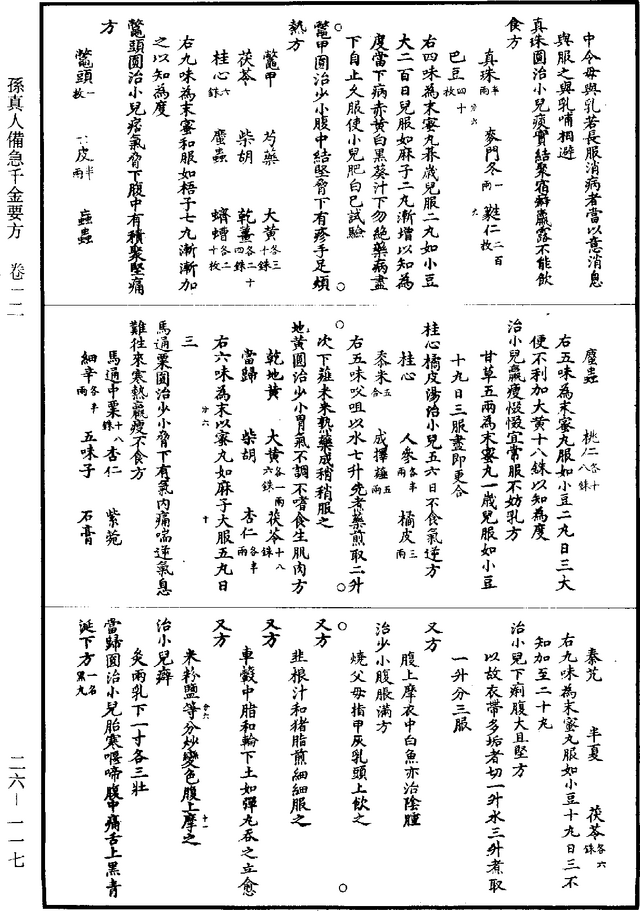 中令母與乳若長服消病者當以意消息
與服之與乳哺相避
真珠圓治小兒痰實結聚宿癖羸露不能飲
食方
真珠半兩 麥門冬一兩 蕤仁二百枚
巴豆四十枚
右四味為末蜜丸朞歲兒服二丸如小豆
大二百日兒服如麻子二丸漸增以知為
度當下病赤黃白黑葵汁下勿絕藥病盡
下自止久服使小兒肥白已試驗
鼈甲圓治少小腹中結堅脅下有疹手足煩
熱方
鼈甲 芍藥 大黃各三十銖
茯苓 柴胡 乾薑各二十四銖
桂心六銖 䗪蟲 蠐螬各二十枚
右九味為末蜜和服如梧子七丸漸漸加
之以知為度
鼈頭圓治小兒痞氣脅下腹中有積聚堅痛
方
鼈頭一枚 皮半兩 蝱蟲
䗪蟲 桃仁各十八銖
右五味為末蜜丸服如小豆二丸日三大
便不利加大黃十八銖以知為度
治小兒羸瘦惙惙宜常服不妨乳方
甘草五兩為末蜜丸一歲兒服如小豆
十丸日三服盡即更合
桂心橘皮湯治小兒五六日不食氣逆方
桂心 人參各半兩 橘皮三兩
黍米五合 成擇薤五兩
右五味㕮咀以水七升先煮藥煎取二升
次下薤米米熟藥成稍稍服之
地黃圓治少小胃氣不調不嗜食生肌肉方
乾地黃 大黃各一兩六銖 茯苓十八銖
當歸 柴胡 杏仁各半兩
右六味為末以蜜丸如麻子大服五丸日
三
馬通粟圓治少小脅下有氣內痛喘逆氣息
難往來寒熱羸瘦不食方
馬通中粟十八銖 杏仁 紫菀
細辛各半兩 五味子 石膏
秦艽 半夏 茯苓各六銖
右九味為末蜜丸服如小豆十丸日三不
知加至二十丸
治小兒下痢腹大且堅方
以故衣帶多垢者切一升水三升煮取
一升分三服
又方
腹上摩衣中白魚亦治陰腫
治少小腹脹滿方
燒父母指甲灰乳頭上飲之
又方
韭根汁和猪脂煎細細服之
又方
車轂中脂和輪下土如彈丸吞之立愈
又方
米粉鹽等分炒變色腹上摩之
治小兒癖
灸兩乳下一寸各三壯
當歸圓治小兒胎寒𠲿啼腹中痛舌上黑青
涎下方一名黑丸
孫真人備急千金要方 卷一二
二六—一一七